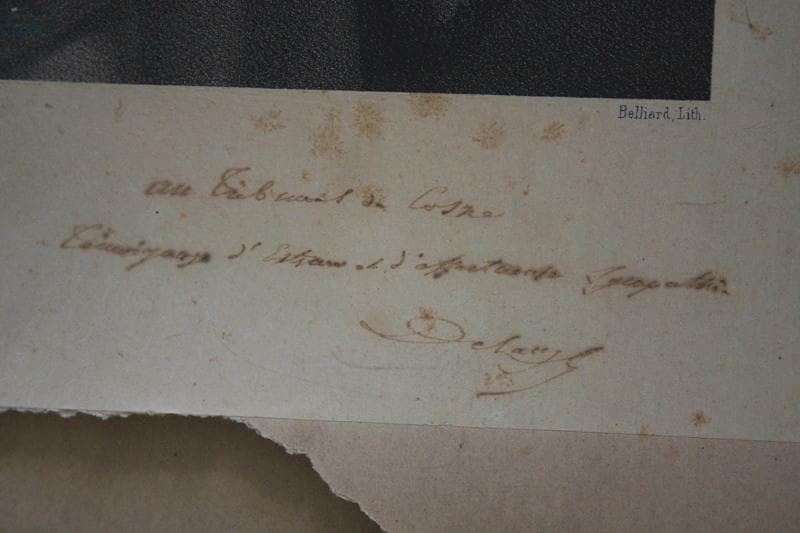 Belliard, Lith.
au Tribunal de Cosne
Témoignage d'Estime et d'affectueuse Sympathie